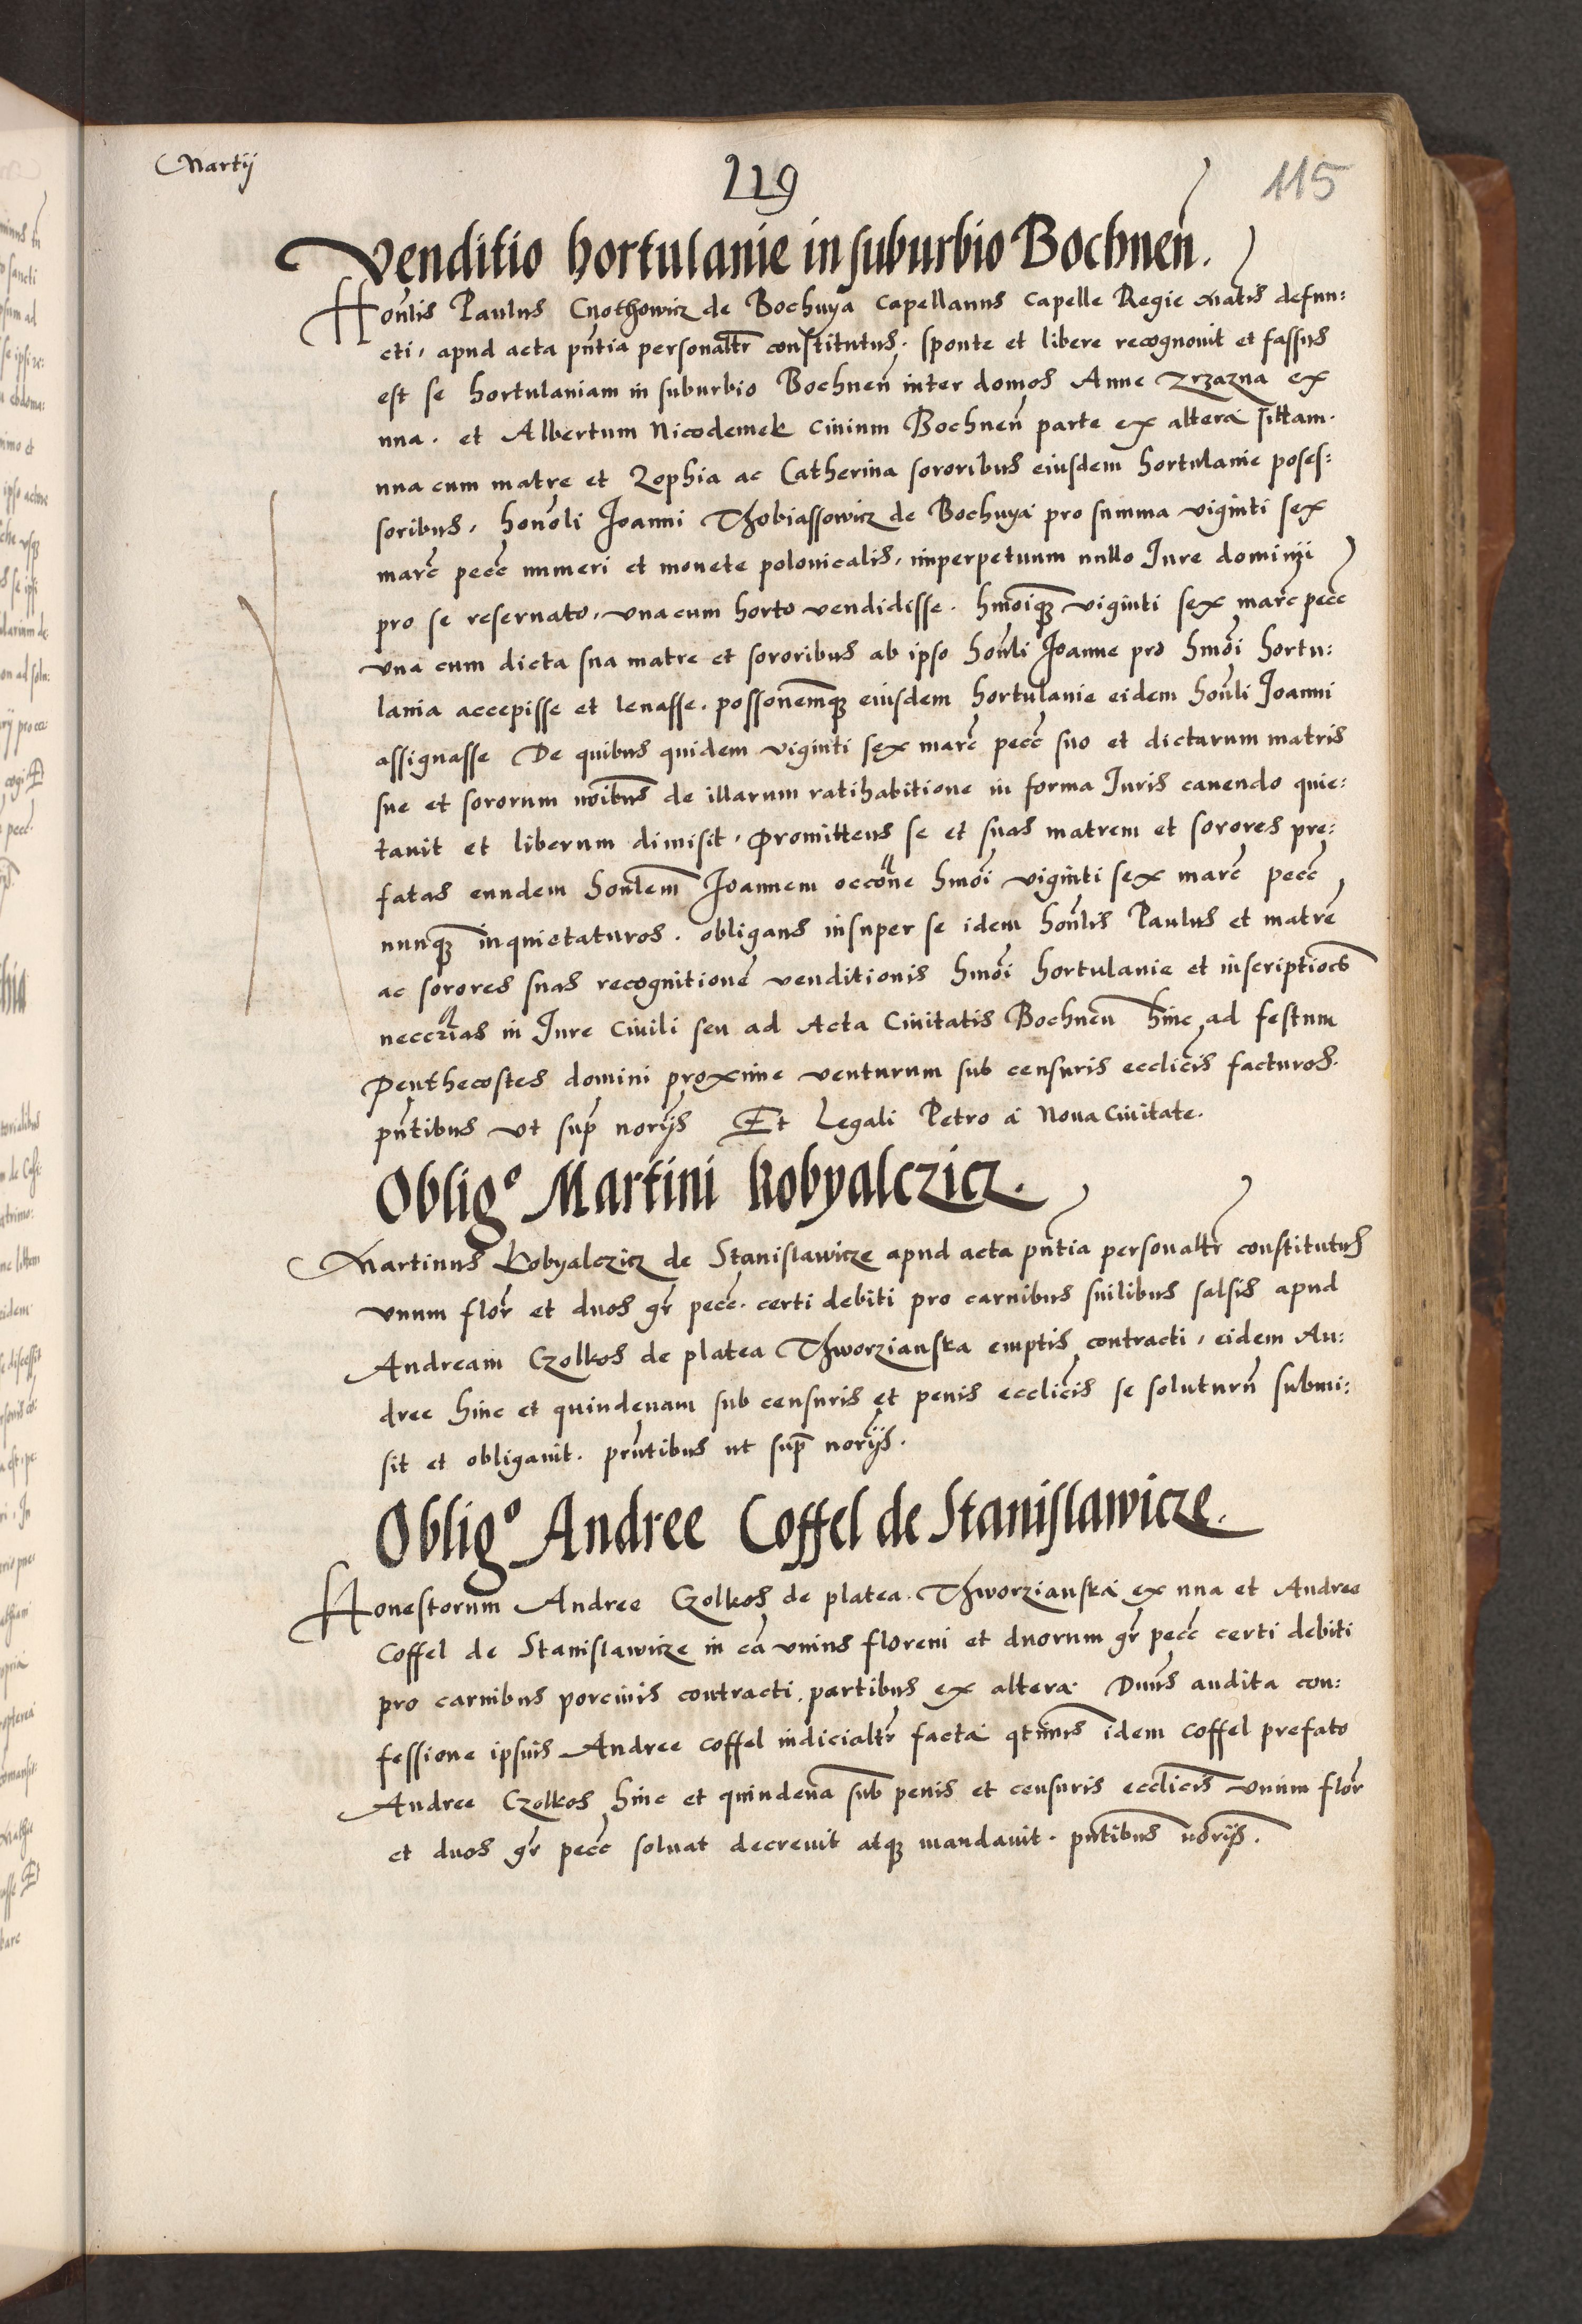 Martij
119
115
Venditio hortulanie in suburbio Bochneñ.
Honlis Paulus Cnothowicz de Bochnya Capellanus Capelle Regie Matis defun:
cti, apud acta pñtia personaltr constitutus. sponte et libere recognovit et fassus
est se hortulaniam in suburbio Bochneñ inter domos Anne Zrzazna ex
una. et Albertum Nicodemek Civium Bochneñ parte ex altera sittam.
una cum matre et Zophia ac Catherina sororibus eiusdem hortulanie posses:
soribus, honoli Joanni Thobiassowicz de Bochnya pro summa viginti sex
marc pecc numeri et monete polonicalis, imperpetuum nullo Jure dominij
pro se reservato, una cum horto vendidisse. hmoiqz viginti sex marc pecc
una cum dicta sua matre et sororibus ab ipso honli Joanne pro hmoi hortu:
lania accepisse et levasse. possonemqz eiusdem hortulanie eidem honli Joanni
assignasse De quibus quidem viginti sex marc pecc suo et dictarum matris
sue et sororum noibus de illarum ratihabitione in forma Juris cavendo quie:
tavit et liberum dimisit, Promittens se et suas matrem et sorores pre:
fatas eundem honlem Joannem occone hmoi viginti sex marc pecc
nunqz inquietaturos. obligans insuper se idem honlis Paulus et matre
ac sorores suas recognitione venditionis hmoi hortulanie et inscriptiões
neccrias in Jure Civili seu ad Acta Civitatis Bochneñ hinc ad festum
Penthecostes domini proxime venturum sub censuris ecclicis facturos.
pñtibus ut sup norijs Et Legali Petro a Nova Civitate.
Obligo Martini Kobyalczicz.
Martinus Kobyalczicz de Stanislawicze apud acta pñtia personaltr constitutus
unum flor et duos gr pecc. certi debiti pro carnibus suilibus salsis apud
Andream Czolkos de platea Thworzianska emptis contracti, eidem An:
dree hinc et quindenam sub censuris et penis ecclicis se soluturũ submi:
sit et obligavit. prñtibus ut sup norijs.
Obligo Andree Coffel de Stanislawicze.
Honestorum Andree Czolkos de platea Thworzianska ex una et Andree
Coffel de Stanislawicze in cã unius floreni et duorum gr pecc certi debiti
pro carnibus porcinis contracti partibus ex altera. Dnus audita con:
fessione ipsius Andree Coffel iudicialtr facta qtinus idem Coffel prefato
Andree Czolkos hinc et quindena sub penis et censuris ecclicis unum flor
et duos gr pecc solvat decrevit atqz mandavit. pñtibus norijs.